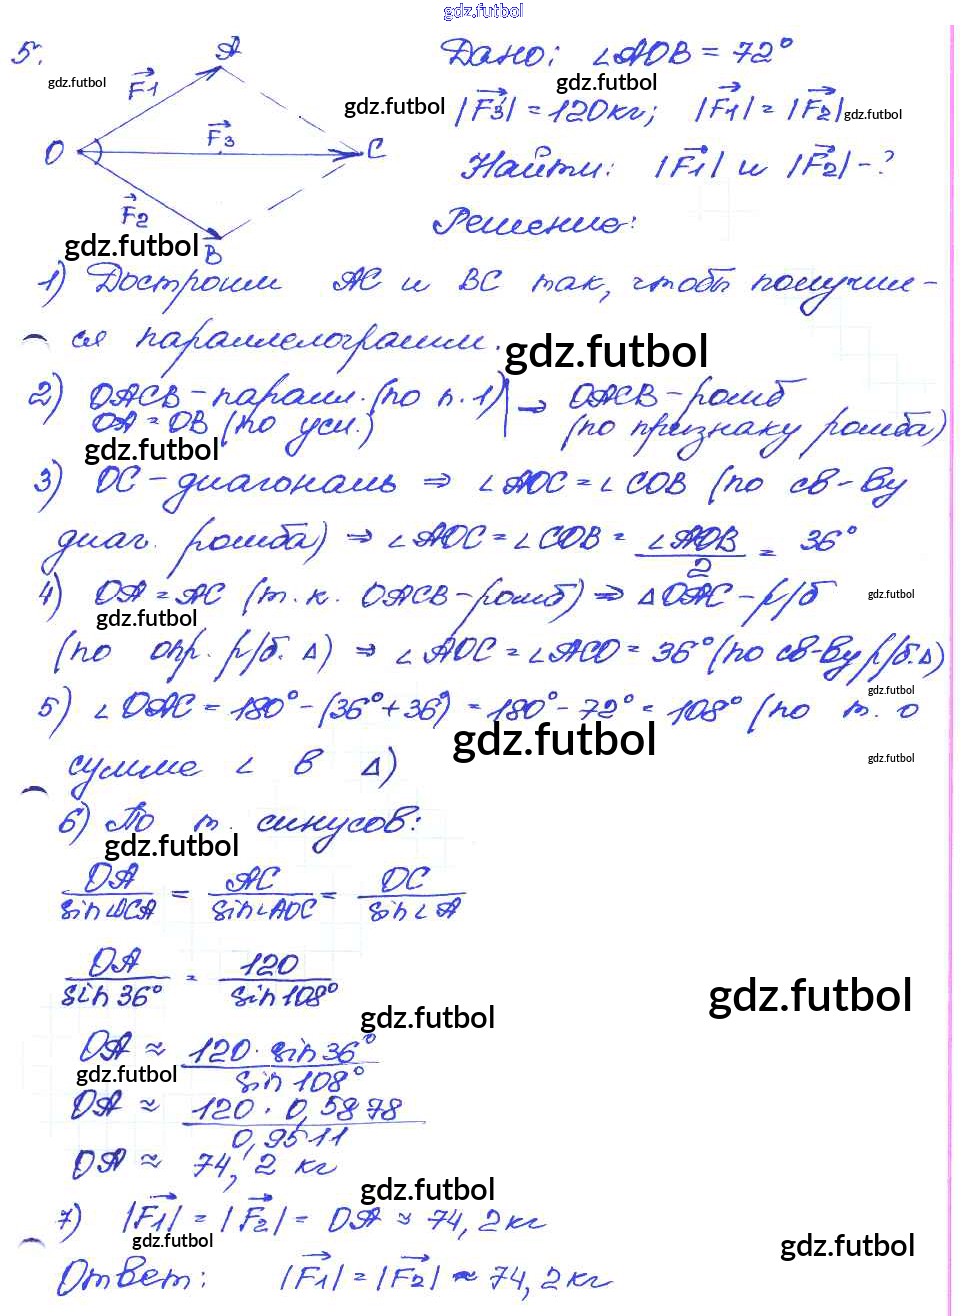 gdz.futbol
5. A Дано: ∠AOB = 72°
gdz.futbol F1 gdz.futbol gdz.futbol
|F3| = 120кг; |F1| = |F2| gdz.futbol
O F3 C
Найти: |F1| и |F2| - ?
F2 Решение:
gdz.futbol B
1) Достроим AC и BC так, чтобы получил-
ся параллелограмм. gdz.futbol
2) OACB - парал. (по п. 1) ⇒ OACB - ромб
OA = OB (по усл.) (по признаку ромба)
gdz.futbol
3) OC - диагональ ⇒ ∠AOC = ∠COB (по св-ву
диаг. ромба) ⇒ ∠AOC = ∠COB = ∠AOB/2 = 36°
4) OA = AC (т.к. OACB - ромб) ⇒ ΔOAC - р/б gdz.futbol
gdz.futbol
(по опр. р/б. Δ) ⇒ ∠AOC = ∠ACO = 36° (по св-ву р/б. Δ)
gdz.futbol
5) ∠OAC = 180° - (36° + 36°) = 180° - 72° = 108° (по т. о
gdz.futbol
сумме ∠ в Δ) gdz.futbol
6) По т. синусов:
gdz.futbol
OA/sin∠OCA = AC/sin∠AOC = OC/sin∠A
OA/sin36° = 120/sin108°
gdz.futbol
gdz.futbol
OA ≈ 120 · sin36°/sin108°
gdz.futbol
OA ≈ 120 · 0,5878/0,9511
OA ≈ 74,2 кг
gdz.futbol
7) |F1| = |F2| = OA ≈ 74,2кг
gdz.futbol gdz.futbol
Ответ: |F1| = |F2| ≈ 74,2кг